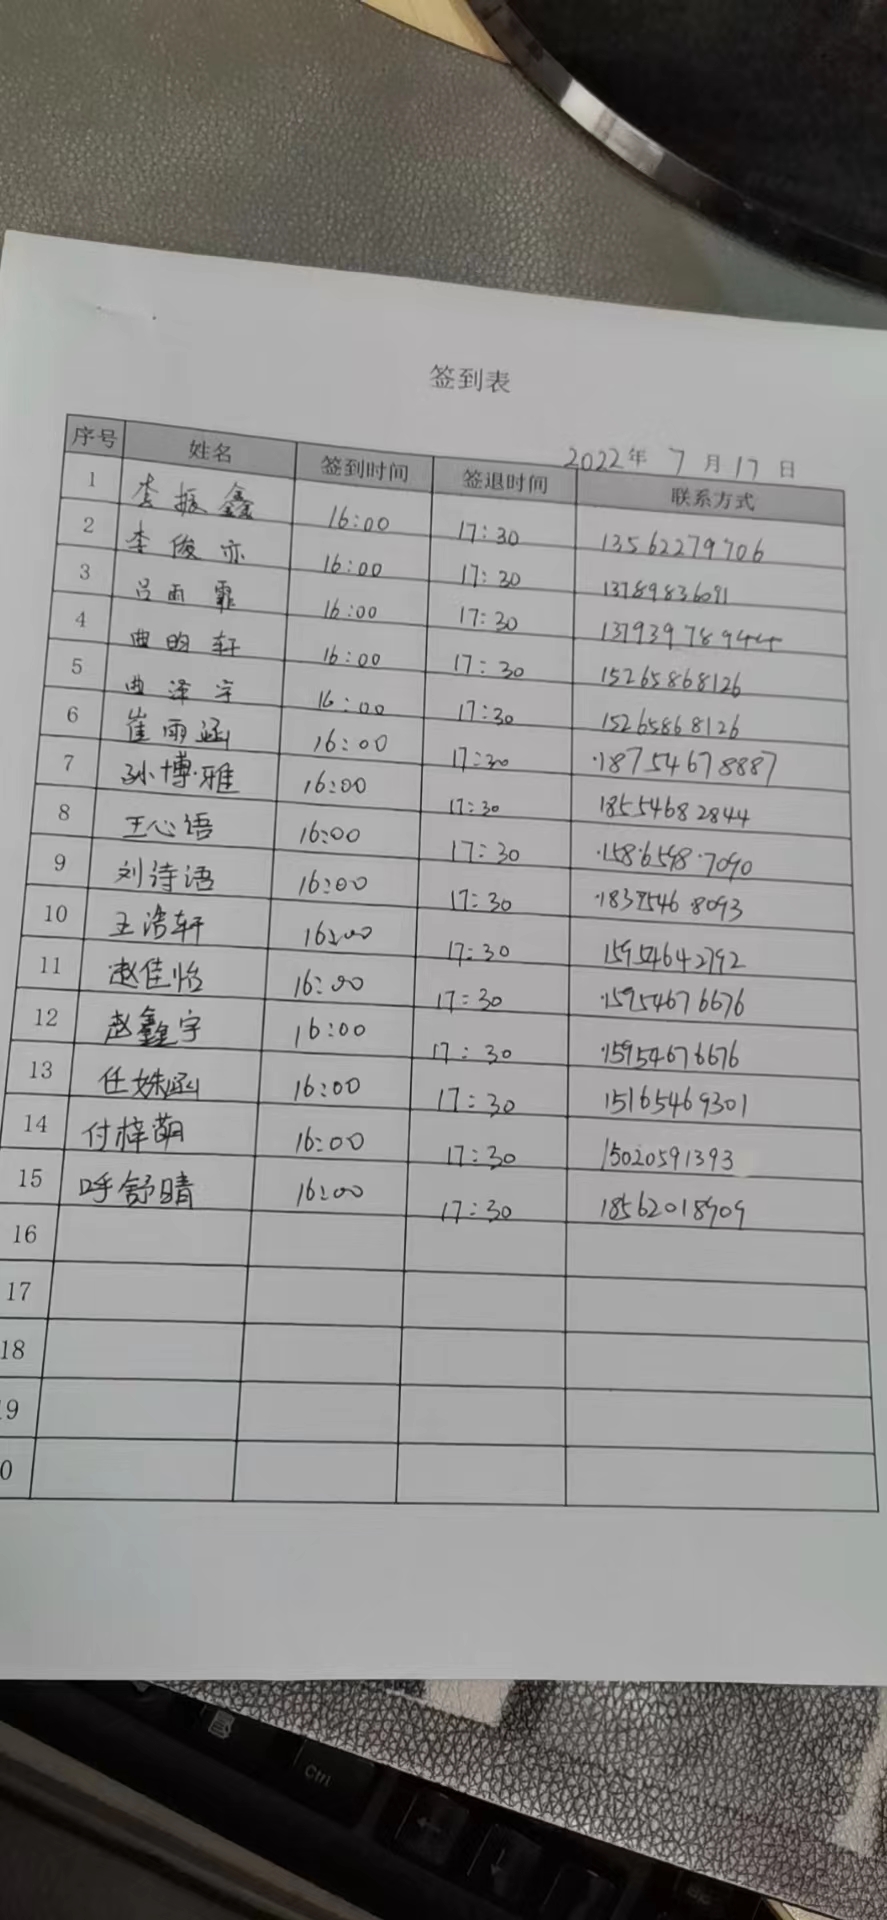 签到表
2022年 7月17日
序号 姓名 签到时间 签退时间 联系方式
1 李振鑫 16:00 17:30 13562279706
2 李俊亦 16:00 17:30 13789836091
3 吕雨霏 16:00 17:30
4 曲昀轩 16:00 17:30 15265868126
5 曲泽宇 16:00 17:30 15265868126
6 崔雨涵 16:00 17:30 18754678887
7 孙博雅 16:00 17:30 18554682844
8 王心语 16:00 17:30 15865987090
9 刘诗语 16:00 17:30
10 王浩轩 16:00 17:30 15954642792
11 赵佳怡 16:00 17:30 15954676676
12 赵鑫宇 16:00 17:30 15954676676
13 任姝涵 16:00 17:30 15165469301
14 付梓萌 16:00 17:30 15020591393
15 呼舒晴 16:00 17:30 18562018909
16
17
18
19
0
Ctrl